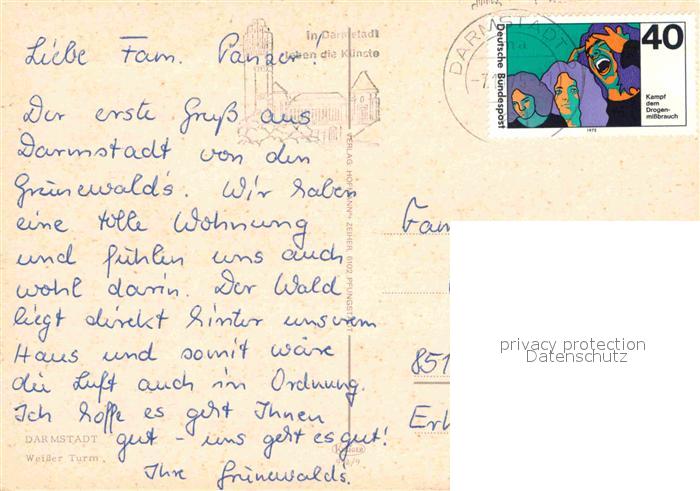 Liebe Fam. Panzer!
Der erste Gruß aus
Darmstadt von den
Grünewald's. Wir haben
eine tolle Wohnung
und fühlen uns auch
wohl darin. Der Wald
liegt direkt hinter unserem
Haus und somit wäre
die Luft auch in Ordnung.
Ich hoffe es geht Ihnen
gut - uns geht es gut!
Ihre Grünewalds.
DARMSTADT
Weißer Turm
In Darmstadt
leben die Künste
DARMSTADT
Deutsche Bundespost
40
Kampf
dem
Drogen-
mißbrauch
1975
Fam
851
Erl
privacy protection
Datenschutz